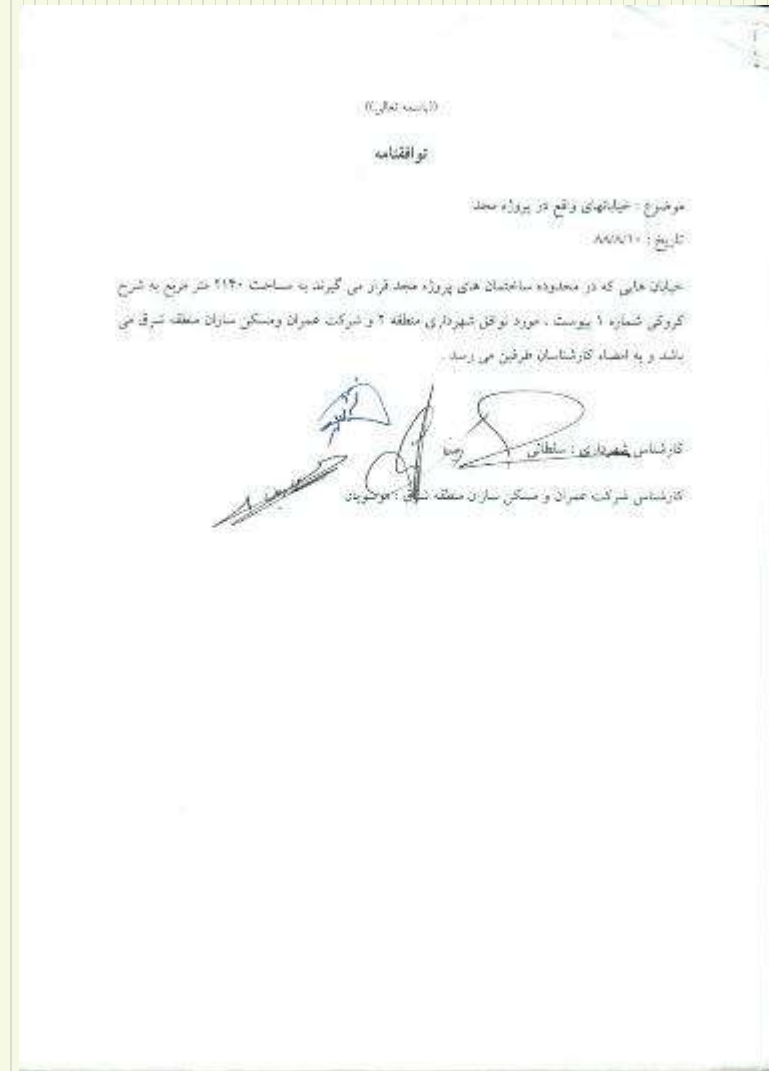 ((باسمه تعالی))
توافقنامه
موضوع : خیابانهای واقع در پروژه مجد
تاریخ : ۸۸/۸/۱۰
خیابان هایی که در محدوده ساختمان های پروژه مجد قرار می گیرند به مساحت ۲۱۴۰ متر مربع به شرح
کروکی شماره ۱ پیوست ، مورد توافق شهرداری منطقه ۲ و شرکت عمران ومسکن سازان منطقه شرق می
باشد و به امضاء کارشناسان طرفین می رسد .
کارشناس شهرداری : سلطانی
کارشناس شرکت عمران و مسکن سازان منطقه شرق :